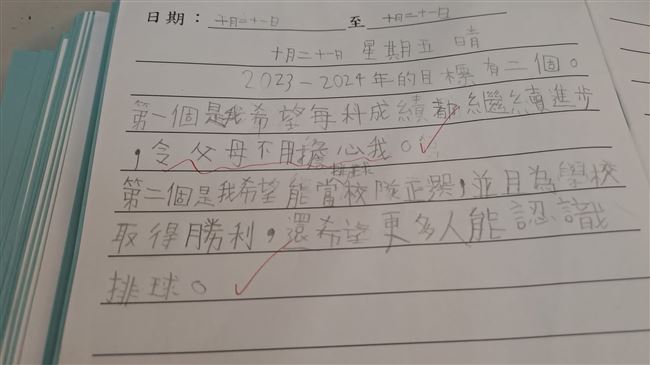 日期：十月二十一日 至 十月二十一日
十月二十一日 星期五 晴
2023-2024年的目標有二個。
第一個是我希望每科成績都繼續進步
，令父母不用擔心我。
排球
第二個是我希望能當校隊正選，並且為學校
取得勝利，還希望更多人能認識
排球。